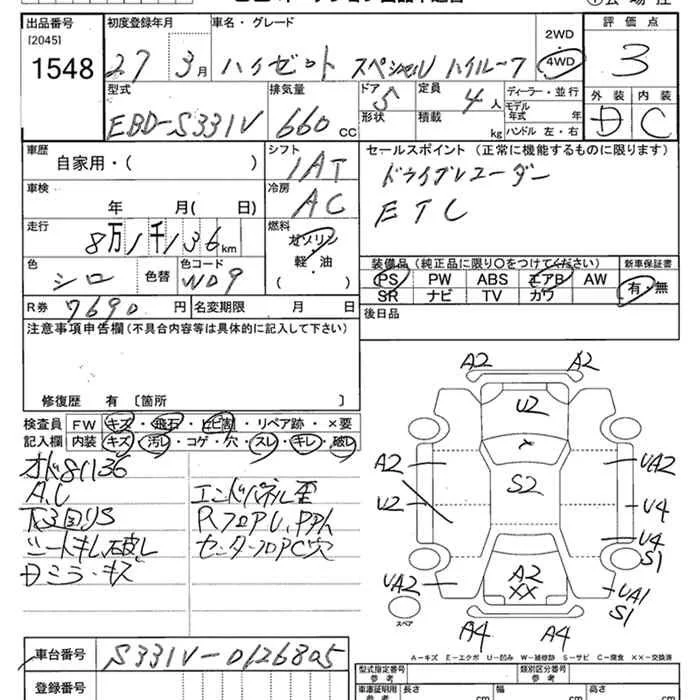 出品番号 初度登録年月 車名・グレード 2WD 評価点
[2045] 1548 27 3月 ハイゼット スペシャル ハイルーフ 4WD 3
型式 排気量 ドア 定員 ディーラー・並行 外装 内装
EBD-S331V 660cc 5 4人 モデル年式 年 D C
形状 積載 kg ハンドル 左・右
車歴 シフト セールスポイント(正常に機能するものに限ります)
自家用・( ) 1AT ドライブレコーダー
車検 冷房 ETC
年 月( 日) AC
走行 燃料
8万1千136km ガソリン
軽・油
( )
装備品(純正品に限り○をつけてください) 新車保証書
色 色替 色コード PS PW ABS エアB AW 有・無
シロ W09 SR ナビ TV カワ
R券 7690円 名変期限 月 日 後日品
注意事項申告欄(不具合内容等は具体的に記入して下さい)
修復歴 有 [箇所 ]
検査員 FW キズ・飛石・ヒビ割・リペア跡・×要
記入欄 内装 キズ・汚レ・コゲ・穴・スレ・キレ・破レ
オド81136
A.C
シートキレ破レ
エンドパネル歪
A2 A2
U2
A2 UA2
S2
U2 U4
U4
S1
UA2 A2 UA1
XX S1
スペア
A4 A4
A-キズ E-エクボ U-凹み W-補修跡 S-サビ C-腐食 XX-交換済
車台番号 S331V-0126805
登録番号
型式指定番号 参考 類別区分番号 参考
車庫証明用 参考 長さ cm 幅 cm 高さ cm